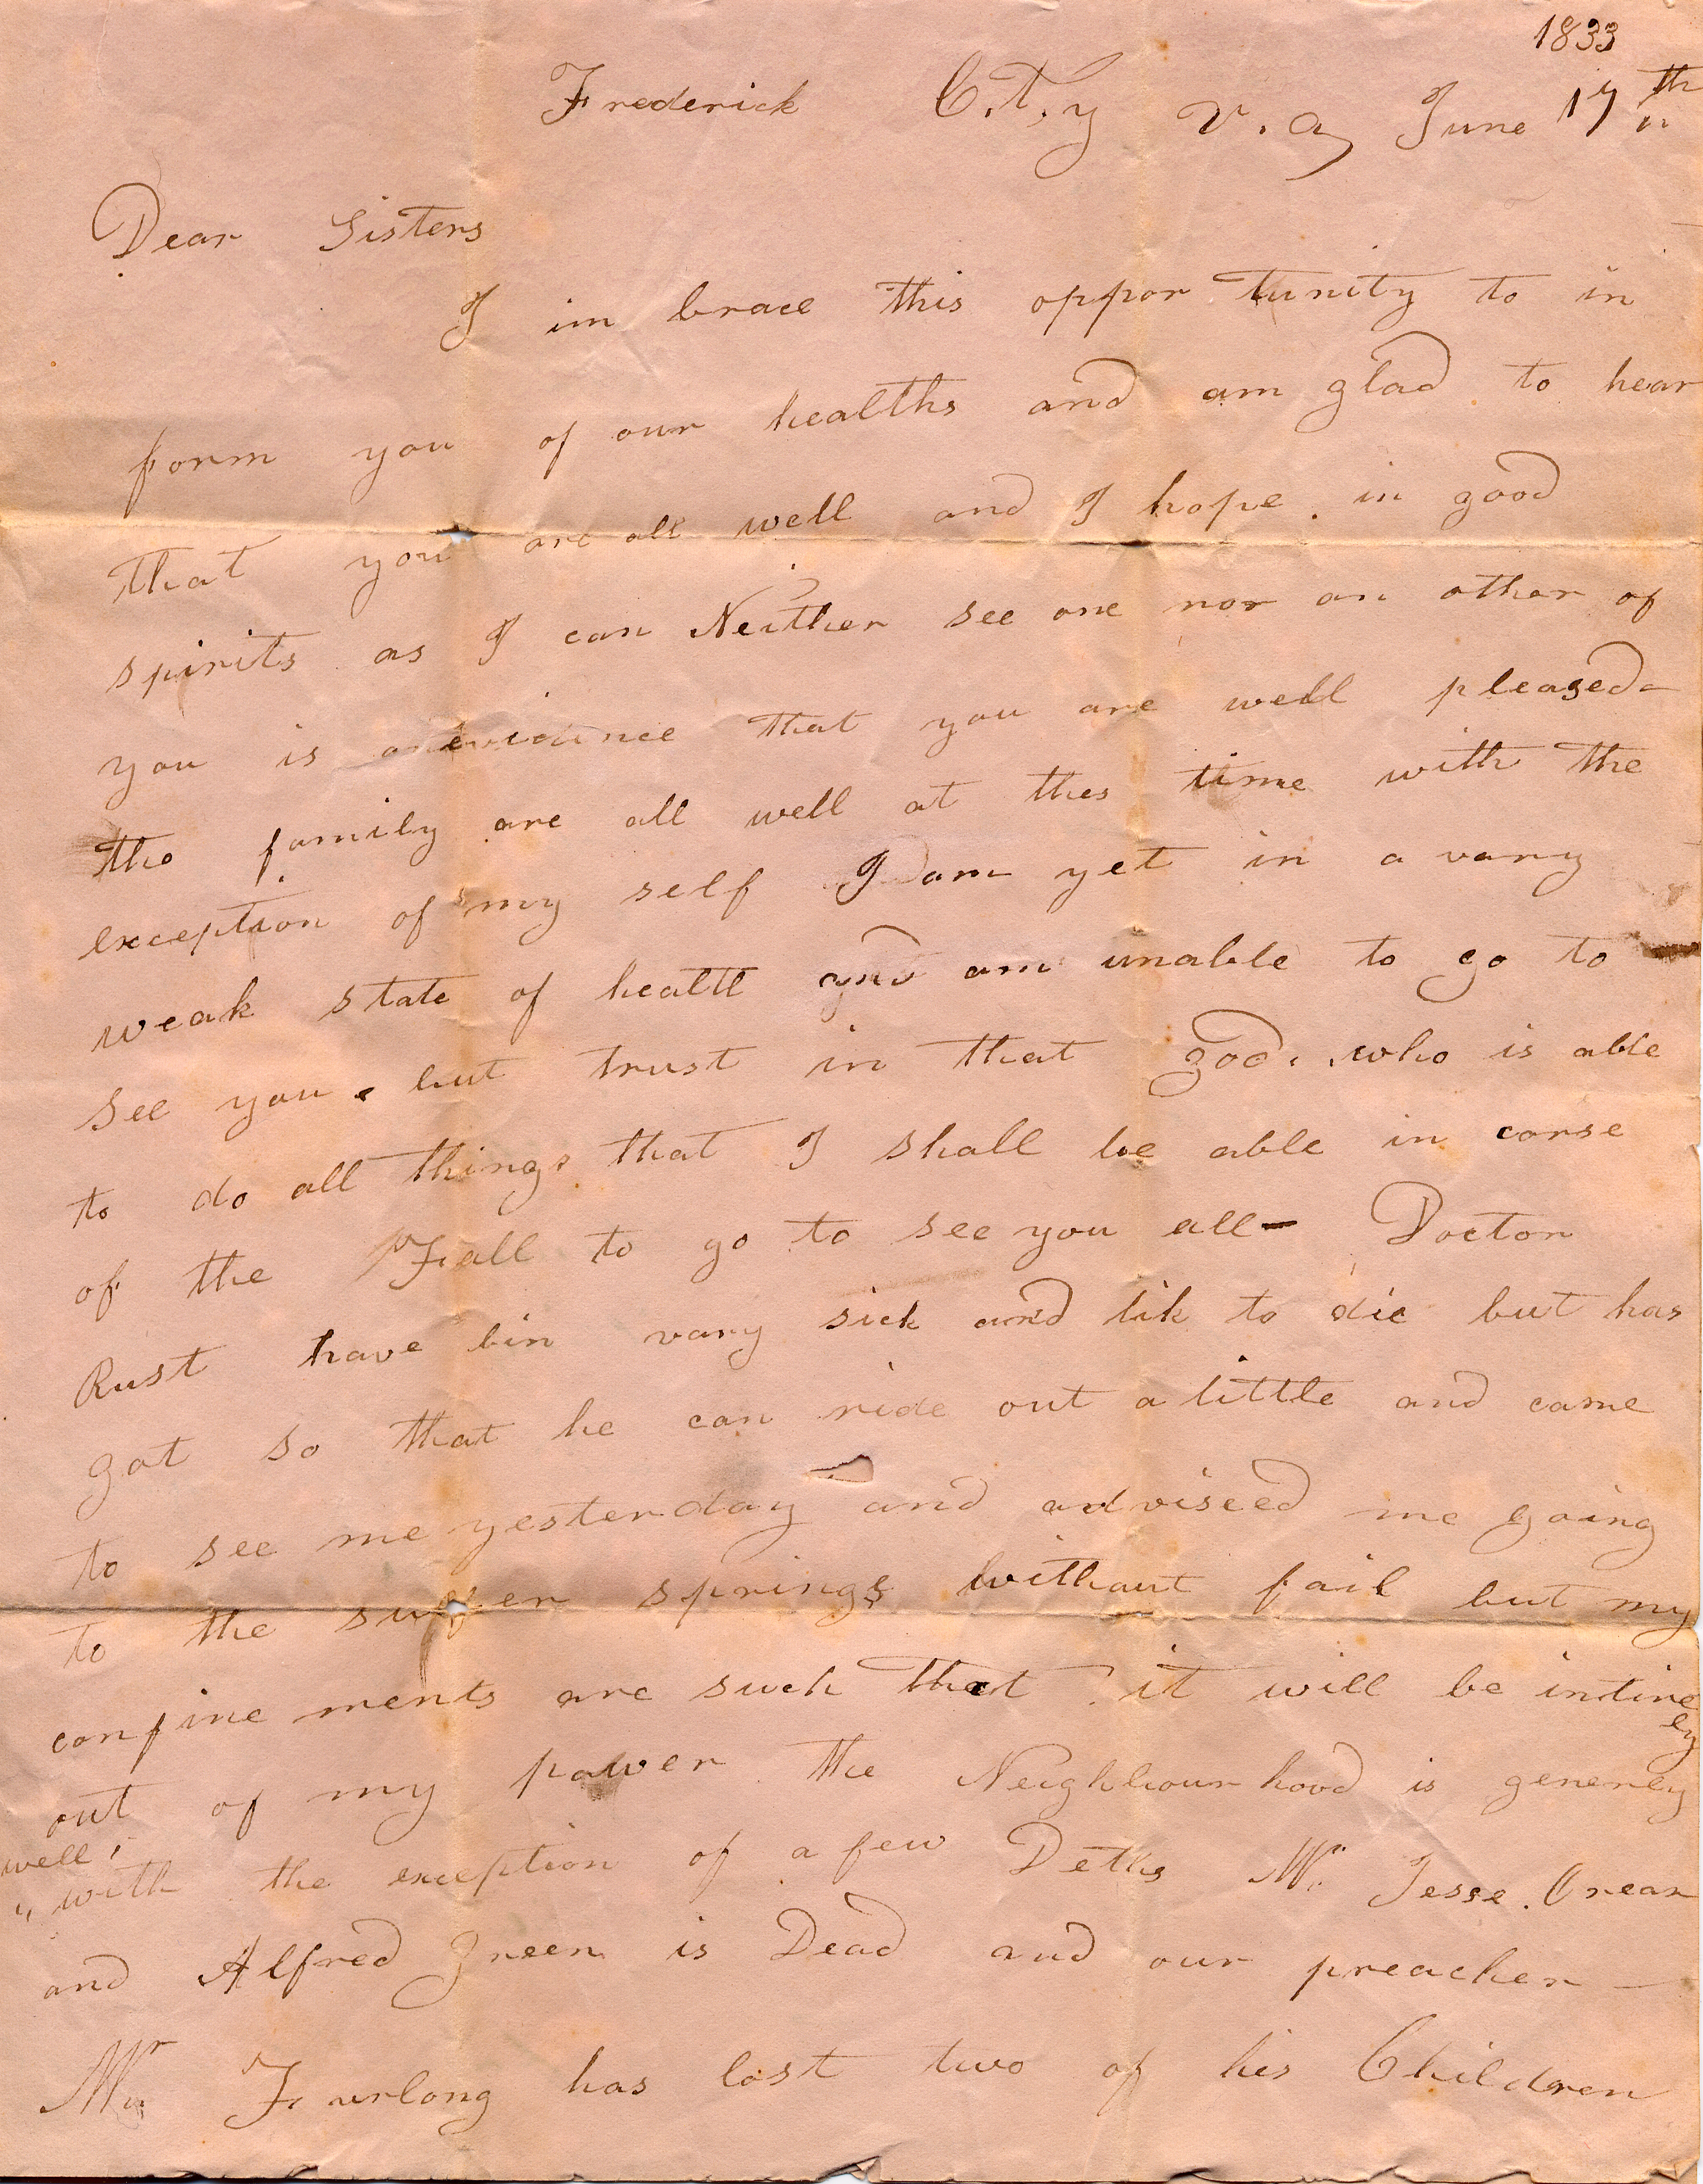 1833
Frederick C.T.y V.a June 17th
Dear Sisters
I im brace this oppor tunity to in
form you of our healths and am glad to hear
that you are all well and I hope in good
spirits as I can Neither see one nor an other of
you is anevidince that you are well pleased
the family are all well at thes time with the
exception of my self I am yet in a vary
weak state of health and am unable to go to
see you. but trust in that god. who is able
to do all things that I shall be able in corse
of the Fall to go to see you all- Doctor
Rust have bin vary sick and lik to die but has
got so that he can ride out a little and came
to see me yesterday and adviseed me going
to the springs without fail but my
confine ments are such that it will be intire
ly
out of my power the Neighbourhood is generey
well,
" with the exception of a few Deths Mr. Jesse. Orear
and Alfred Green is Dead and our preacher -
Mr Furlong has lost two of his Children